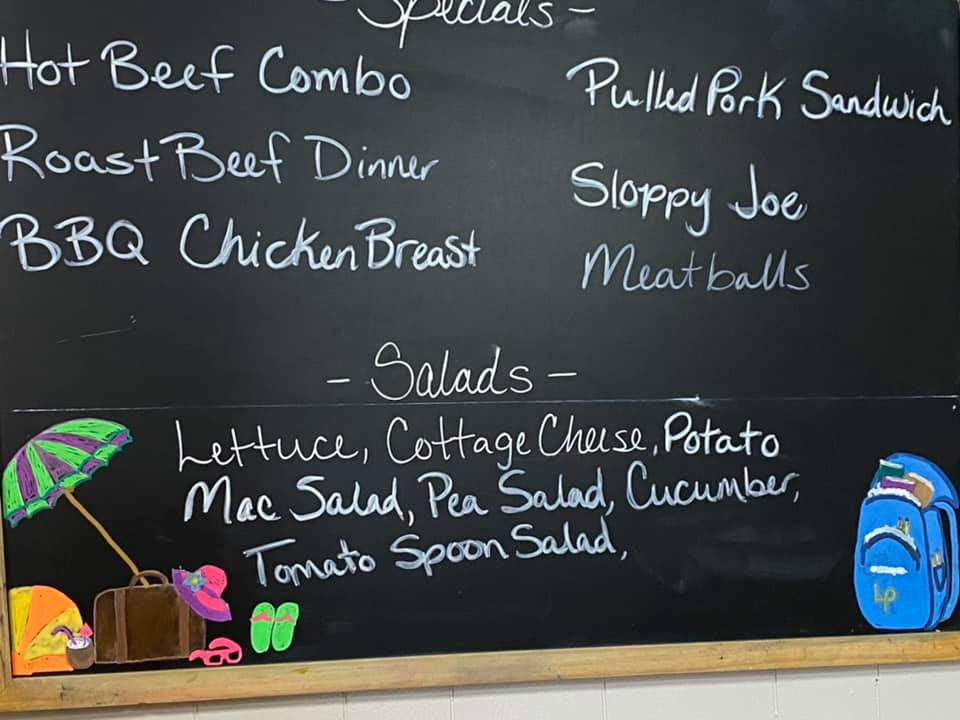 - Specials -
Hot Beef Combo
Roast Beef Dinner
BBQ Chicken Breast
Pulled Pork Sandwich
Sloppy Joe
Meatballs
- Salads -
Lettuce, Cottage Cheese, Potato
Mac Salad, Pea Salad, Cucumber,
Tomato Spoon Salad,
LP